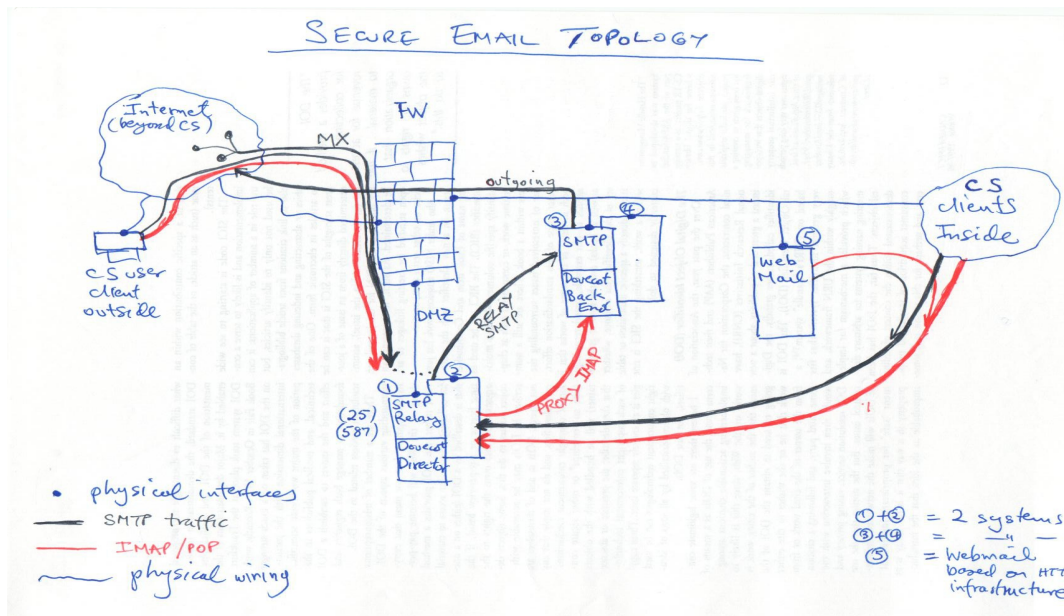 SECURE EMAIL TOPOLOGY
Internet
(beyond CS)
MX
FW
outgoing
CS user
client
outside
DMZ
RELAY
SMTP
③
SMTP
Dovecot
Back
End
④
⑤
Web
Mail
CS
clients
Inside
PROXY IMAP
①
②
SMTP
Relay
(25)
(587)
Dovecot
Director
physical interfaces
SMTP traffic
IMAP/POP
physical wiring
①+② = 2 systems
③+④ = — " —
⑤ = Webmail
based on HTT
infrastructure